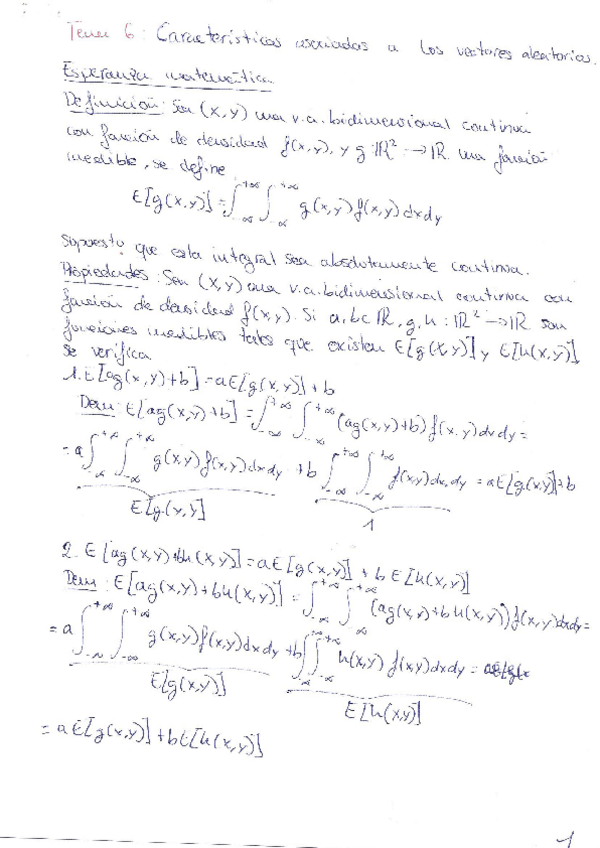 Tema 6: Características asociadas a los vectores aleatorios.
Esperanza matemática
Definición: Sea (X,Y) una v.a. bidimensional continua
con función de densidad f(x,y), y g: ℝ² → ℝ una función
medible, se define
E[g(X,Y)] = ∫_{-∞}^{+∞} ∫_{-∞}^{+∞} g(x,y) f(x,y) dx dy
Supuesto que esta integral sea absolutamente continua.
Propiedades: Sea (X,Y) una v.a. bidimensional continua con
función de densidad f(x,y). Si a, b ∈ ℝ, g, h: ℝ² → ℝ son
funciones medibles tales que existen E[g(X,Y)] y E[h(X,Y)]
se verifica
1. E[ag(X,Y)+b] = aE[g(X,Y)] + b
Dem: E[ag(X,Y)+b] = ∫_{-∞}^{+∞} ∫_{-∞}^{+∞} (ag(x,y)+b) f(x,y) dx dy =
= a ∫_{-∞}^{+∞} ∫_{-∞}^{+∞} g(x,y) f(x,y) dx dy + b ∫_{-∞}^{+∞} ∫_{-∞}^{+∞} f(x,y) dx dy = aE[g(X,Y)] + b
E[g(X,Y)] 1
2. E[ag(X,Y)+bh(X,Y)] = aE[g(X,Y)] + bE[h(X,Y)]
Dem: E[ag(X,Y)+bh(X,Y)] = ∫_{-∞}^{+∞} ∫_{-∞}^{+∞} (ag(x,y)+bh(x,y)) f(x,y) dx dy =
= a ∫_{-∞}^{+∞} ∫_{-∞}^{+∞} g(x,y) f(x,y) dx dy + b ∫_{-∞}^{+∞} ∫_{-∞}^{+∞} h(x,y) f(x,y) dx dy =
E[g(X,Y)] E[h(X,Y)]
= aE[g(X,Y)] + bE[h(X,Y)]
1